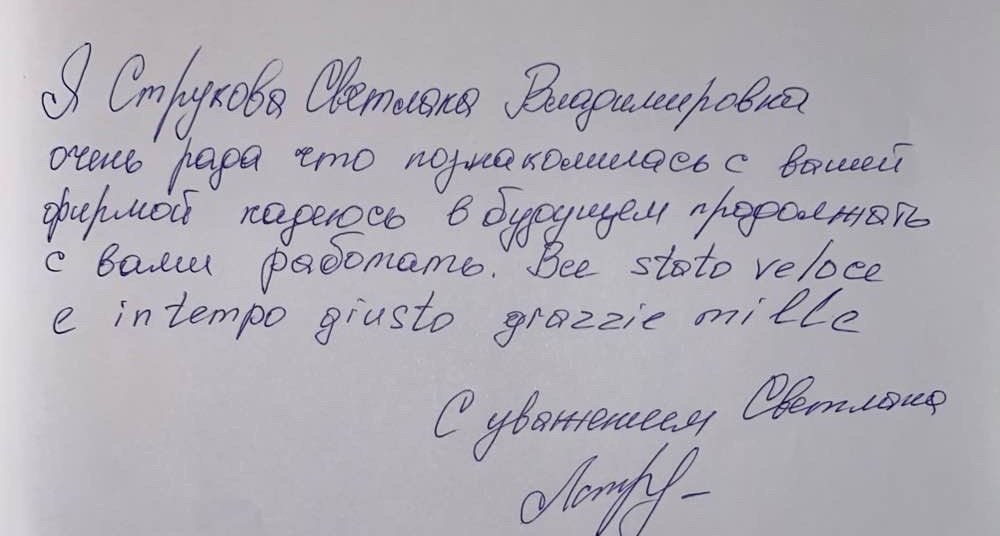 Я Струкова Светлана Владимировна
очень рада что познакомилась с вашей
фирмой надеюсь в будущем продолжать
с вами работать. Все stato veloce
e in tempo giusto grazzie mille
С уважением Светлана